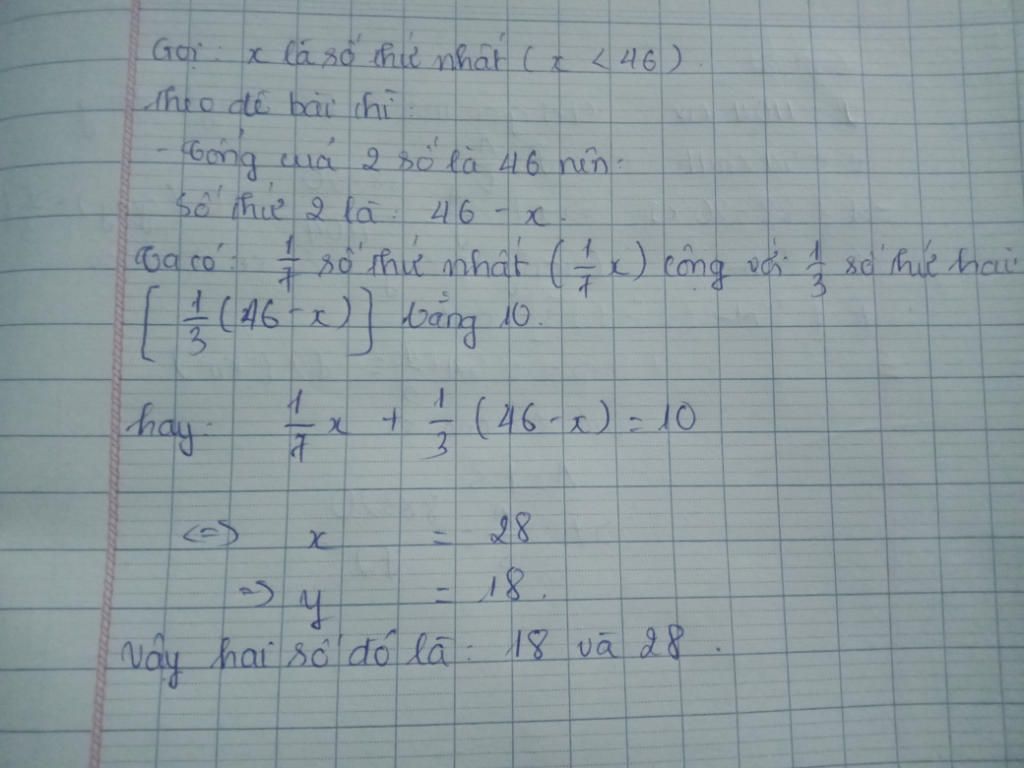 Gọi: x là số thứ nhất ( x < 46 ).
Theo đề bài thì:
- Tổng quả 2 số là 46 nên:
số thứ 2 là: 46 - x.
Ta có: 1/7 số thứ nhất (1/7 x) cộng với 1/3 số thứ hai
[ 1/3 (46 - x) ] bằng 10.
hay: 1/7 x + 1/3 (46 - x) = 10
<=> x = 28
=> y = 18.
Vậy hai số đó là: 18 và 28.